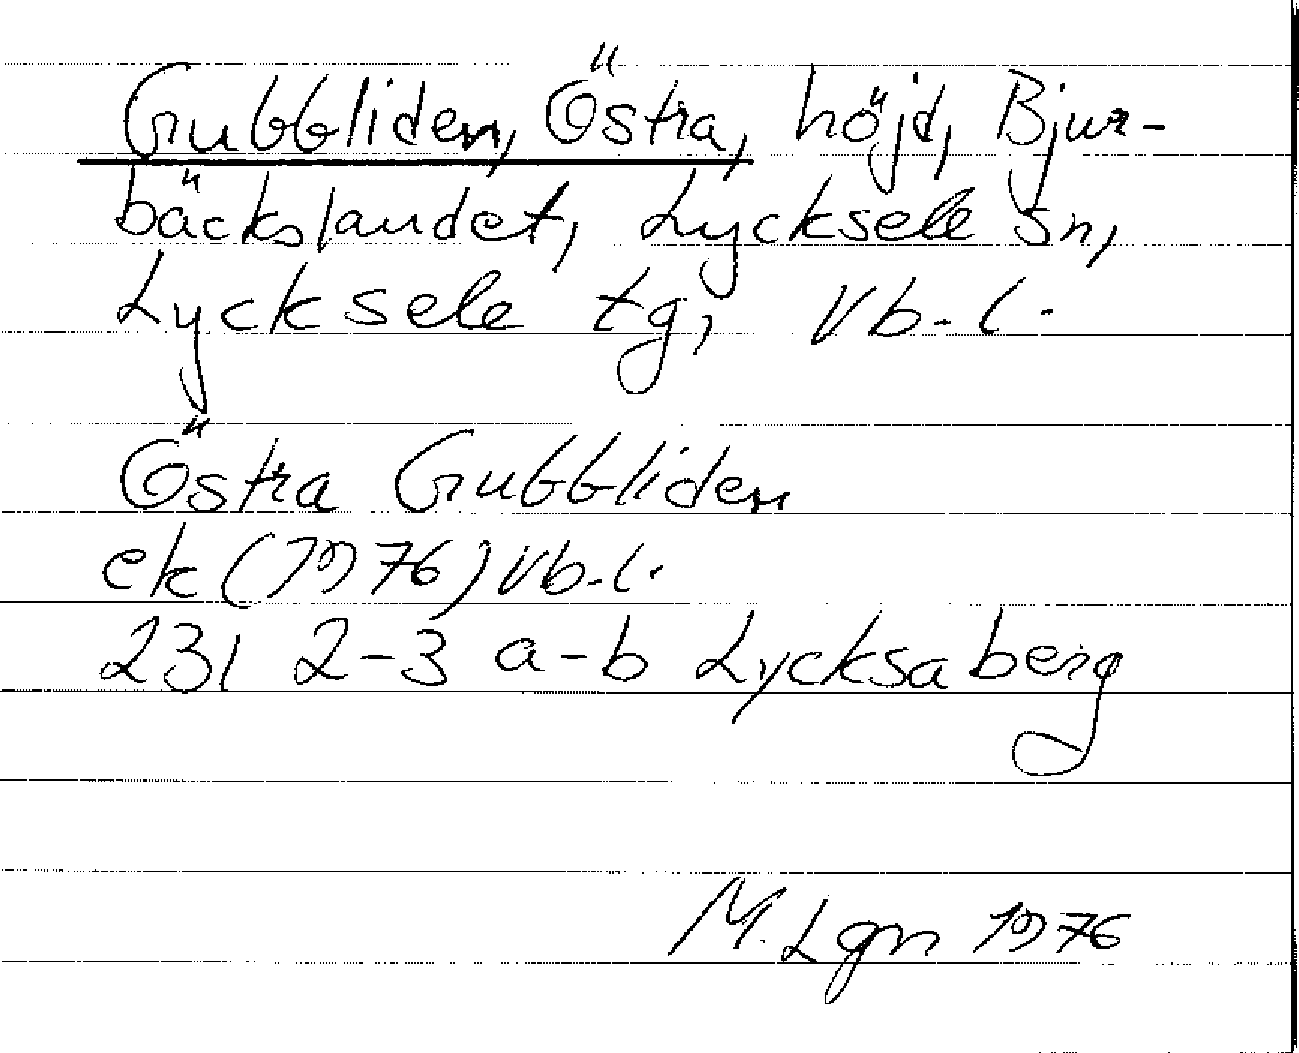 Gubbliden, Östra, höjd, Bjur-
bäckslandet, Lycksele sn,
Lycksele tg, Vb. l.
Östra Gubbliden
ek (1976) Vb. l.
23I 2-3 a-b Lycksaberg
M. Lgn 1976